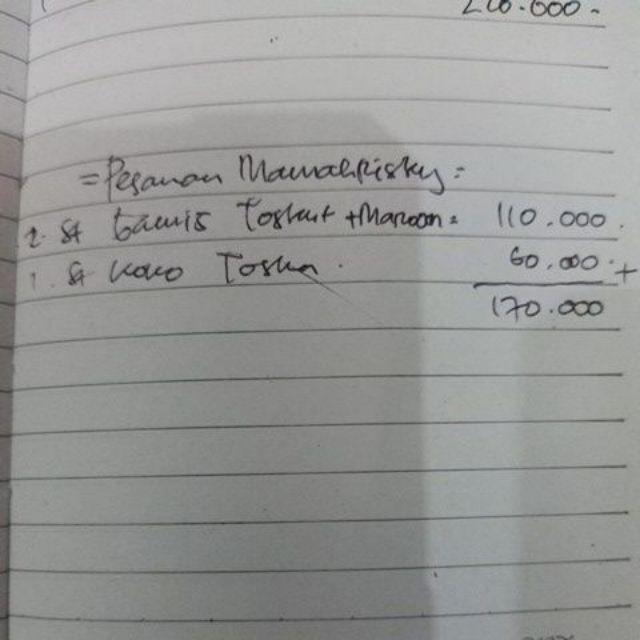 210.000.
= Pesanan Mamah Risky =
2. St Gamis Toska + Maroon = 110.000.
1. St Koko Toska. 60.000. +
170.000